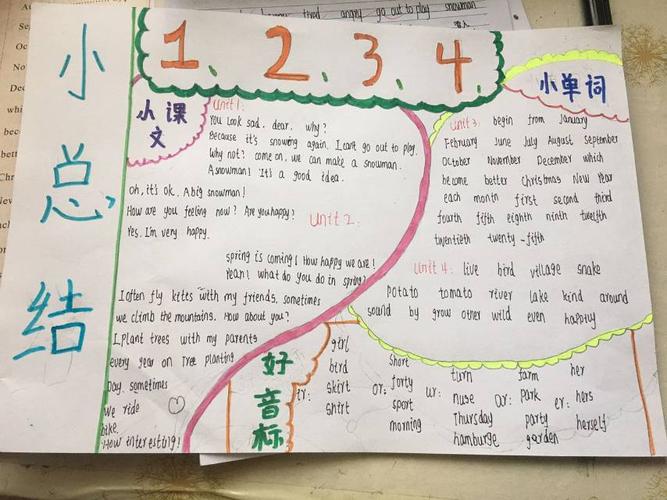 小总结
1、2、3、4、
小课文
Unit 1:
You look sad, dear, why?
Because it's snowing again. I can't go out to play.
Why not? come on, we can make a snowman.
A snowman! It's a good idea.
Oh, it's ok. A big snowman!
How are you feeling now? Are you happy?
Yes. I'm very happy.
Unit 2.
spring is coming! How happy we are!
Yeah! what do you do in spring?
I often fly kites with my friends. sometimes
we climb the mountains. How about you?
I plant trees with my parents
every year on Tree planting
Day. sometimes
we ride
bike.
How interesting!
小单词
Unit 3: begin from January
February June July August September
October November December which
become better Christmas New Year
each month first second third
fourth fifth eighth ninth twelfth
twentieth twenty-fifth
Unit 4: live bird village snake
potato tomato river lake kind around
sound by grow other wild even happily
好音标
ir:
girl
bird
skirt
shirt
or:
short
forty
sport
morning
ur:
turn
nuse
Thursday
hamburge
ar:
farm
park
party
garden
er:
her
hers
herself